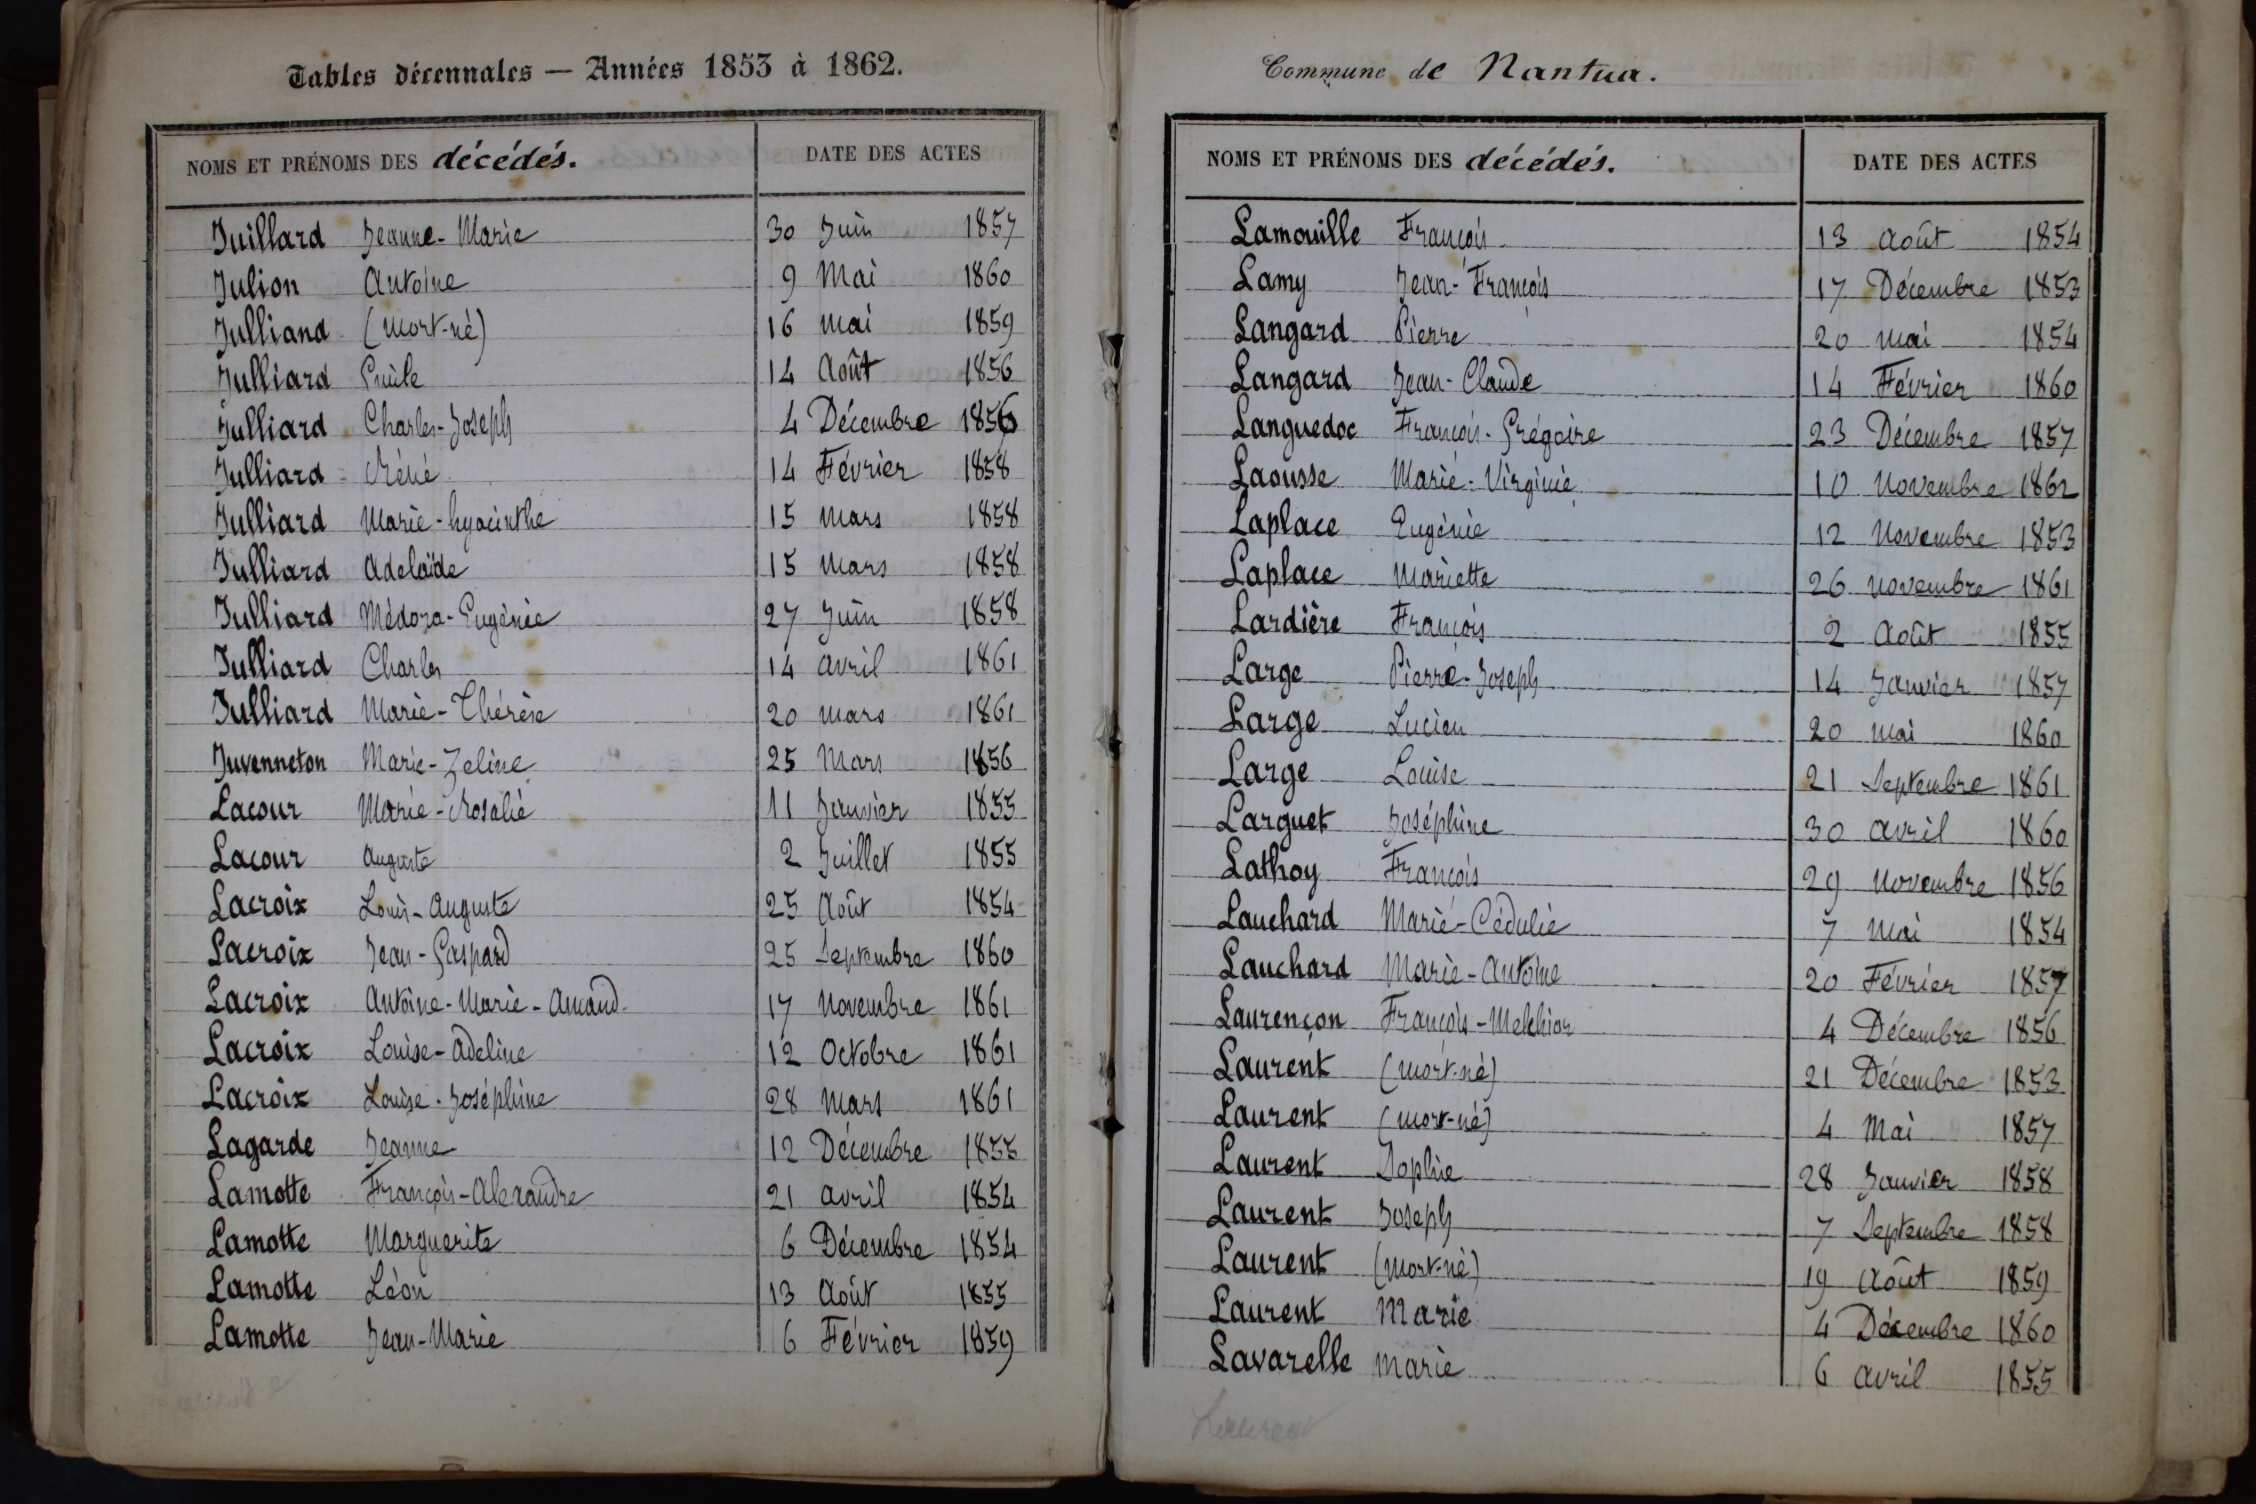 Tables décennales — Années 1853 à 1862.
NOMS ET PRÉNOMS DES décédés. DATE DES ACTES
Juillard Jeanne-Marie 30 Juin 1857
Julion Antoine 9 Mai 1860
Julliand (Mort-né) 16 Mai 1859
Julliard Emile 14 Août 1856
Julliard Charles-Joseph 4 Décembre 1856
Julliard Réné 14 Février 1858
Julliard Marie-hyacinthe 15 Mars 1858
Julliard Adelaïde 15 Mars 1858
Julliard Médora-Eugénie 27 Juin 1858
Julliard Charles 14 Avril 1861
Julliard Marie-Thérèse 20 Mars 1861
Juvenneton Marie-Zeline 25 Mars 1856
Lacour Marie-Rosalie 11 Janvier 1855
Lacour Auguste 2 Juillet 1855
Lacroix Louis-Auguste 25 Août 1854
Lacroix Jean-Gaspard 25 Septembre 1860
Lacroix Antoine-Marie-Amand 17 Novembre 1861
Lacroix Louise-Adeline 12 Octobre 1861
Lacroix Louise-Joséphine 28 Mars 1861
Lagarde Jeanne 12 Décembre 1855
Lamotte François-Alexandre 21 Avril 1854
Lamotte Marguerite 6 Décembre 1854
Lamotte Léon 13 Août 1855
Lamotte Jean-Marie 6 Février 1859
Commune de Nantua.
NOMS ET PRÉNOMS DES décédés. DATE DES ACTES
Lamouille François 13 Août 1854
Lamy Jean-François 17 Décembre 1853
Langard Pierre 20 Mai 1854
Langard Jean-Claude 14 Février 1860
Languedoc François-Grégoire 23 Décembre 1857
Laousse Marie-Virginie 10 Novembre 1862
Laplace Eugénie 12 Novembre 1853
Laplace Mariette 26 Novembre 1861
Lardière François 2 Août 1855
Large Pierre-Joseph 14 Janvier 1857
Large Lucien 20 Mai 1860
Large Louise 21 Septembre 1861
Larguet Joséphine 30 Avril 1860
Lathoy François 29 Novembre 1856
Lauchard Marie-Cédulie 7 Mai 1854
Lauchard Marie-Antoine 20 Février 1857
Laurençon François-Melchior 4 Décembre 1856
Laurent (Mort-né) 21 Décembre 1853
Laurent (Mort-né) 4 Mai 1857
Laurent Sophie 28 Janvier 1858
Laurent Joseph 7 Septembre 1858
Laurent (Mort-né) 19 Août 1859
Laurent Marie 4 Décembre 1860
Lavarelle Marie 6 Avril 1855